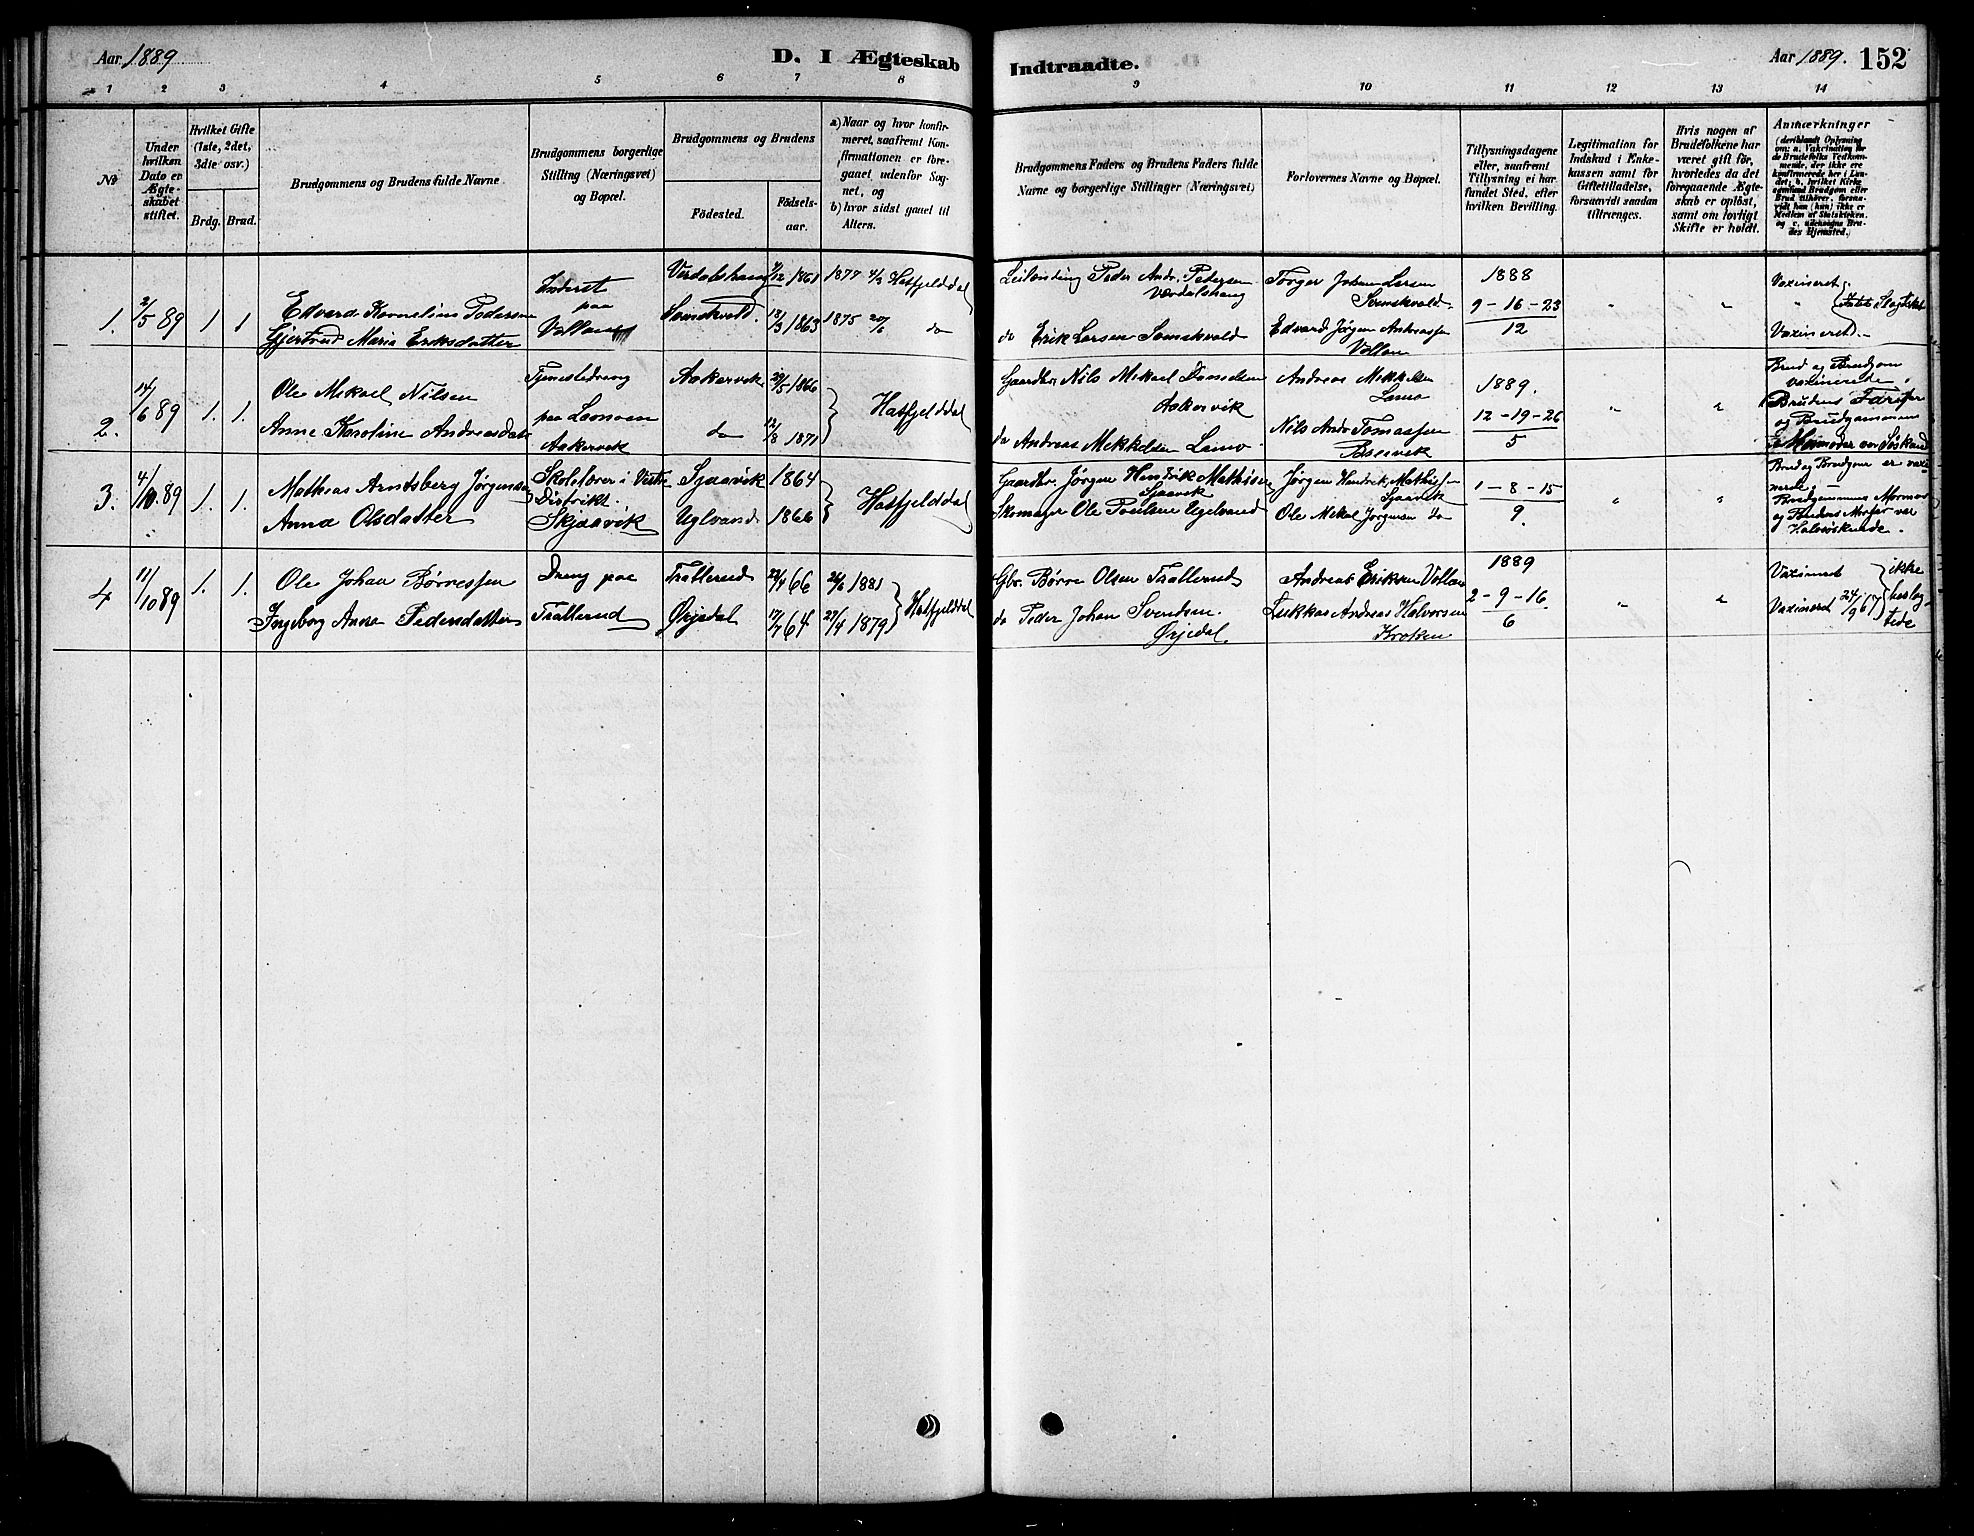 Aar 1889
D. I Ægteskab Indtraadte.
Aar 1889. 152
1 2 3 4 5 6 7 8 9 10 11 12 13 14
№
Under hvilken Dato er Ægteskabet stiftet.
Hvilket Gifte (1ste, 2det, 3die osv.)
Brdg. Brud.
Brudgommens og Brudens fulde Navne
Brudgommens borgerlige Stilling (Næringsvei) og Bopæl.
Brudgommens og Brudens
Födested.
Födselsaar.
a) Naar og hvor konfirmeret, saafremt Konfirmationen er foregaaet udenfor Sognet, og
b) hvor sidst gaaet til Alters.
Brudgommens Faders og Brudens Faders fulde Navne og borgerlige Stillinger (Næringsvei)
Forlovernes Navne og Bopæl.
Tillysningsdagene eller, saafremt Tillysning ei har fundet Sted, efter hvilken Bevilling.
Legitimation for Indskud i Enkekassen samt for Giftetilladelse, forsaavidt saadan tiltrænges.
Hvis nogen af Brudefolkene har været gift før, hvorledes da det foregaaende Ægteskab er oplöst, samt om lovligt Skifte er holdt.
Anmærkninger
(deriblandt Oplysning om: a. Vakcination for de Brudefolks Vedkommende, der ikke ere konfirmerede her i Landet; b. hvilket Kirkesamfund Brudgom eller Brud tilhører, forsaavidt han (hun) ikke er Medlem af Statskirken, og c. udensogns Brudes Hjemsted.)
1. 2/5 89 1 1
Edvard Kornelius Pedersen
Gjertrud Maria Eriksdatter
Inderst paa Vollan
7/12 1861
18/3 1863
1877 Hatfjelddal
1875 20/6 do
Leilending Peder Andr. Pedersen
do Erik Larsen
Torger Johan Larsen
Edvard Jørgen Andreassen
Vollan
1888
9 - 16 - 23
12
" "
Vaxineret
Vaxineret
2. 14/6 89 1. 1.
Ole Mikael Nilsen
Anne Karoline Andreasdatr
Tjenestedreng
paa
Aakervik
Aakervik 29/5 1866
do 12/8 1871
Hatfjelddal
Gaardbr. Nils Mikael Danielsen
Aakervik
do Andreas Mikkelsen
Andreas Mikkelsen
Nils Andr Tomassen
1889.
12 - 19 - 26
5
" "
Brud og Brudgom
vaxinerede.
Brudens Farfar
og Brudgommens
Mormoder var Søskende
3. 4/10 89 1. 1.
Mathias Arntsberg Jørgensen
Anna Olsdatter
Skolelærer i Vestre
Distrikt.
Skjaavik
Sjaavik 1864
Uglvand 1866
Hatfjelddal
Gaardbr. Jørgen Hendrik Mathisen
Sjaavik
Skomager Ole Paulsen Ugelvand
Jørgen Hendrik Mathisen
Sjaavik
Ole Mikal Jørgensen do
1 - 8 - 15
9.
" "
Brud og Brudgom er vaxinerede.
Brudgommens Mormor
og Brudens Morfar var
Halvsøskende.
4 11/10 89 1. 1.
Ole Johan Børresen
Ingeborg Anna Pedersdatter
Dreng paa
Trallerud
Trallerud 22/4 66
Ørjedal 17/7 64
26/6 1881
27/4 1879
Hatfjelddal
Gbr. Børre Olsen Trallerud
do Peder Johan Svendsen.
Ørjedal.
Andreas Eriksen Vollan
Lukkas Andreas Halvorsen
Kroken
1889
2 - 9 - 16
6
" "
Vaximeret
Vaximeret 24/9 67
ikke beslegtede